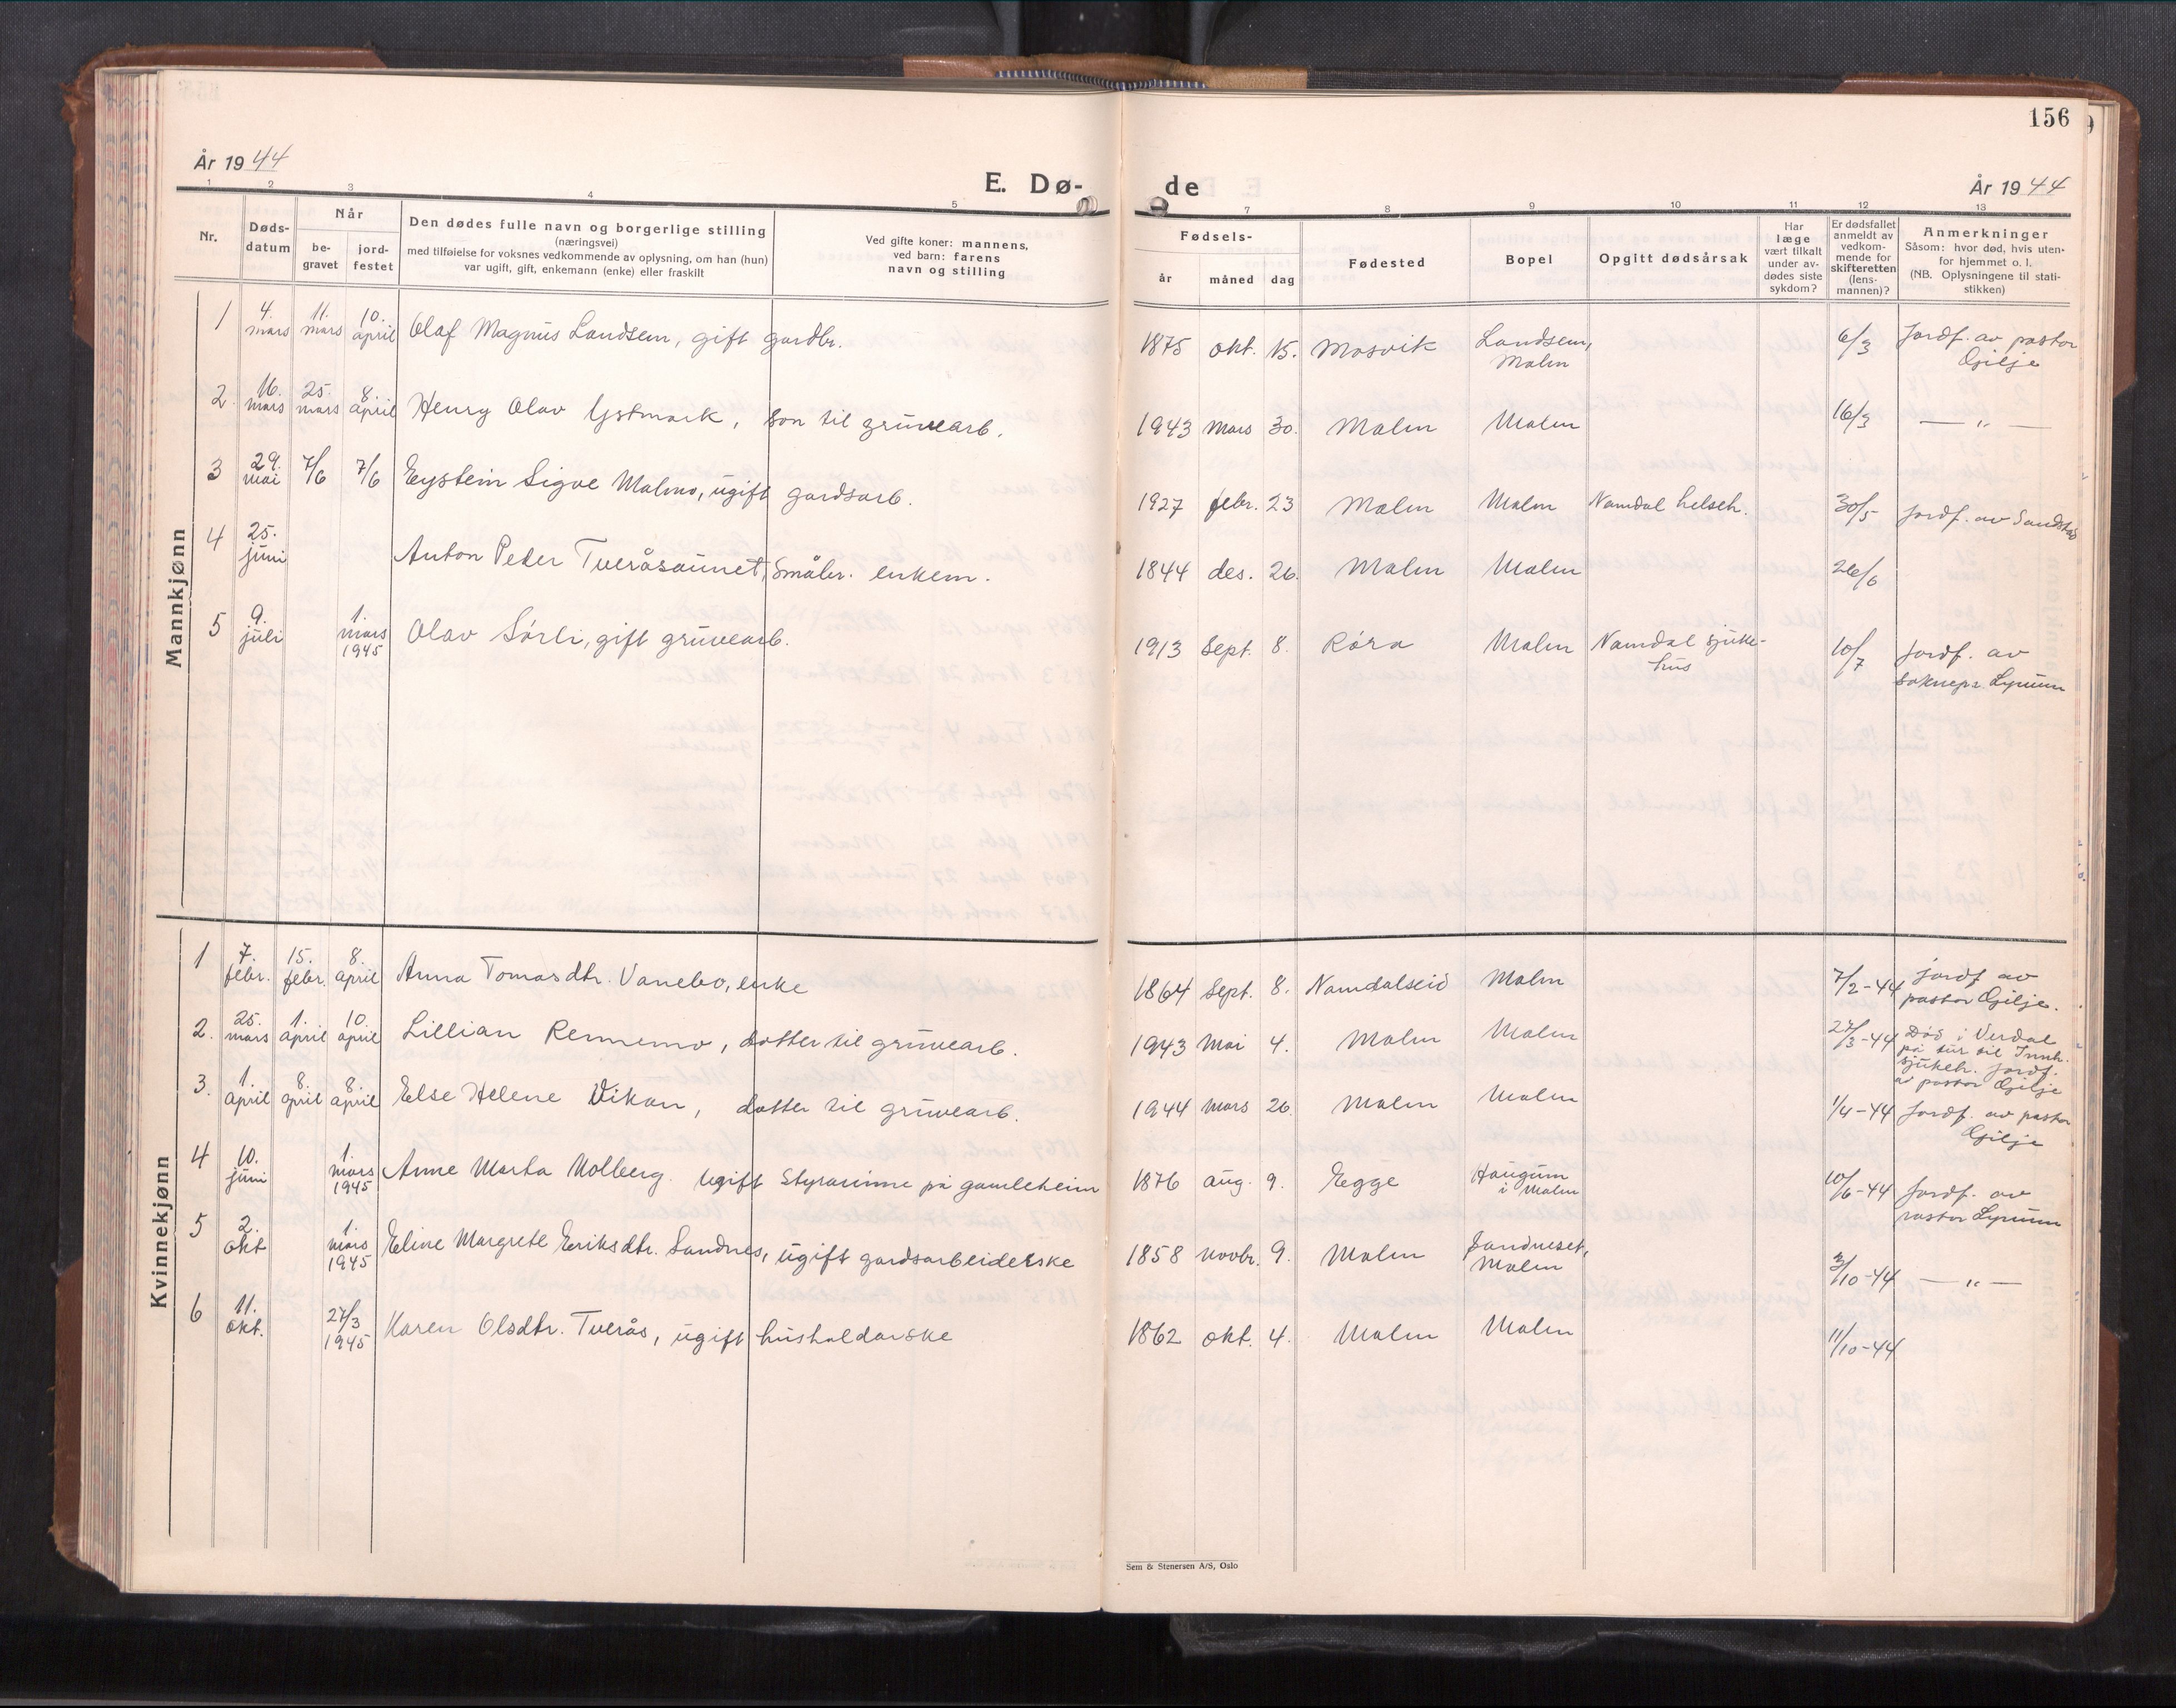 156
År 1944
E. Dø-
de
År 1944
1 2 3 4 5
7 8 9 10 11 12 13
Nr.
Døds-
datum
Når
be-
gravet
jord-
festet
Den dødes fulle navn og borgerlige stilling
(næringsvei)
med tilføielse for voksnes vedkommende av oplysning, om han (hun)
var ugift, gift, enkemann (enke) eller fraskilt
Ved gifte koner: mannens,
ved barn: farens
navn og stilling
Fødsels-
år måned dag
Fødested
Bopel
Opgitt dødsårsak
Har
læge
vært tilkalt
under av-
dødes siste
sykdom?
Er dødsfallet
anmeldt av
vedkom-
mende for
skifteretten
(lens-
mannen)?
Anmerkninger
Såsom: hvor død, hvis uten-
for hjemmet o. l.
(NB. Oplysningene til stati-
stikken)
Mannkjønn
1 4. mars 11. mars 10. april Olaf Magnus Landsem, gift gardbr. 1875 okt. 15. Mosvik Landsem, Malm 6/3 Jordf. av pastor Gilje
2. 16. mars 25. mars 8. april Henry Olav Ystmark, son til gruvearb. 1943 mars 30. Malm Malm 16/3 — " —
3 29. mai 7/6 7/6 Eystein Sigve Malmo, ugift gardsarb. 1927 febr. 23 Malm Malm Namdal helseh. 30/5 Jordf. av Sandstad
4 25. juni Anton Peder Tveråsaunet, småbr. enkem. 1844 des. 26. Malm Malm 26/6
5 9. juli 1. mars 1945 Olav Sórli, gift gruvearb. 1913 Sept. 8. Róra Malm Namdal sjuke-
hus 10/7 Jordf. av
soknepr. Lynum
Kvinnekjønn
1 7. febr. 15. febr. 8. april Anna Tomasdtr. Vanebo, enke 1864 Sept. 8. Namdalseid Malm 7/2-44 jordf av
pastor Gilje.
2. 25. mars 1. april 10. april Lillian Rennemo, dotter til gruvearb. 1943 Mai 4. Malm Malm 27/3-44 Död i Verdal
på tur til Innh.
sjukeh. jordf.
av pastor Gilje
3. 1. april 8. april 8. april Else Helene Vikan, dotter til gruvearb. 1944 Mars 26. Malm Malm 1/4-44 Jordf. av pastor
Gilje
4 10. juni 1. mars 1945 Anne Marta Molberg. ugift Styrarinne på gamleheim 1876 aug. 9. Egge Haugum
i Malm 10/6-44 Jordf. av
pastor Lynum
5 2. okt 1. mars 1945 Eline Margrete Eriksdtr. Sandnes, ugift gardsarbeiderske 1858 novbr. 9. Malm Sandneset,
Malm 3/10-44 — " —
6 11. okt. 27/3 1945 Karen Olsdtr. Tverås, ugift husholdarske 1862 okt. 4. Malm Malm 11/10-44
Sem & Stenersen A/S, Oslo